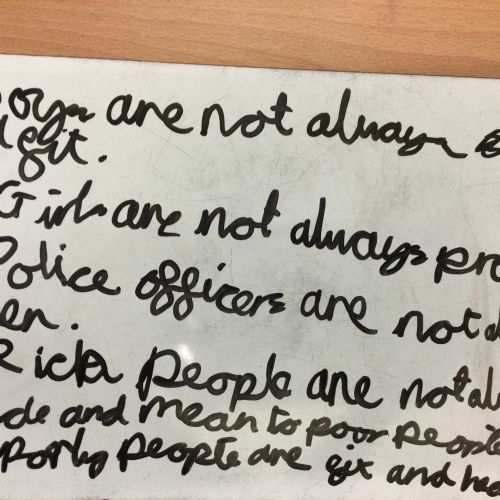 oys are not always
fit.
Girls are not always pr
Police officers are not al
en.
Rich people are not al
de and mean to poor people
Sporty people are fit and hea